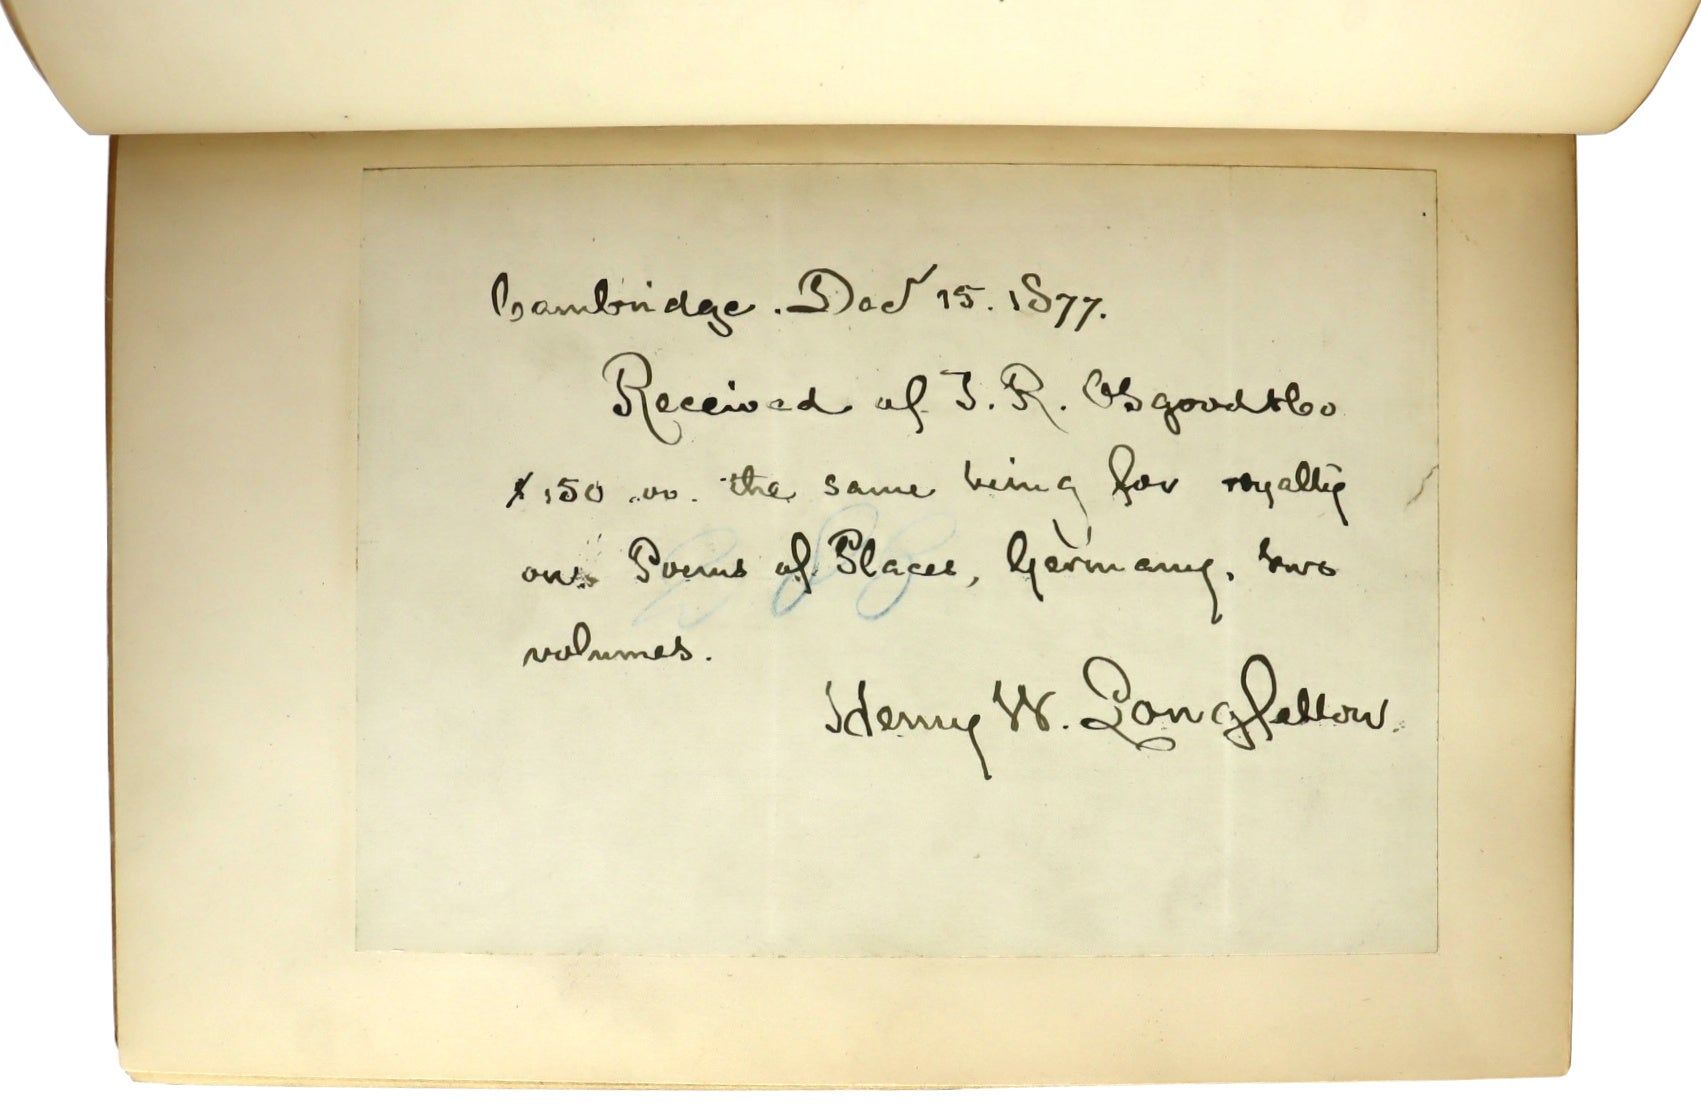 Cambridge. Decr 15. 1877.
Received of J. R. Osgood & Co
$150.00. the same being for royalty
on Poems of Places, Germany, two
volumes.
Henry W. Longfellow.